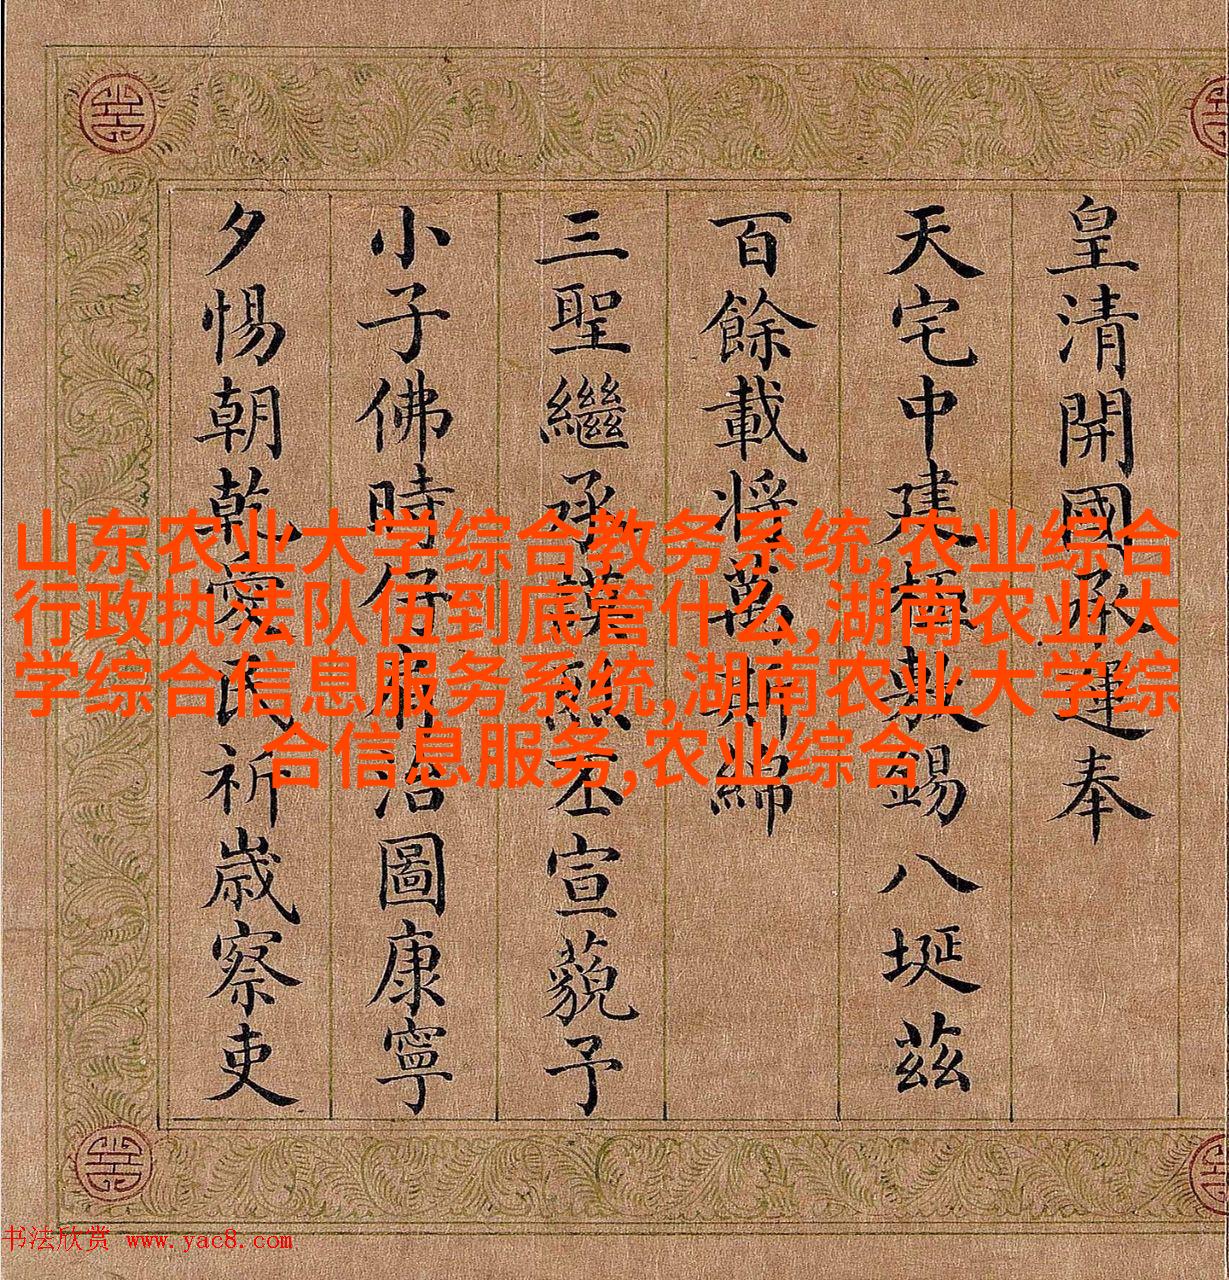 皇清開國承運奉
天宅中建極敷錫八埏茲
百餘載將萬斯綿
三聖繼承謨烈丕宣藐予
小子佛時仔肩治圖康寧
夕惕朝乾愛民祈歲察吏
山东农业大学综合教务系统,农业综合
行政执法队伍到底管什么,湖南农业大
学综合信息服务系统,湖南农业大学综
合信息服务,农业综合
书法欣赏 www.yac8.com